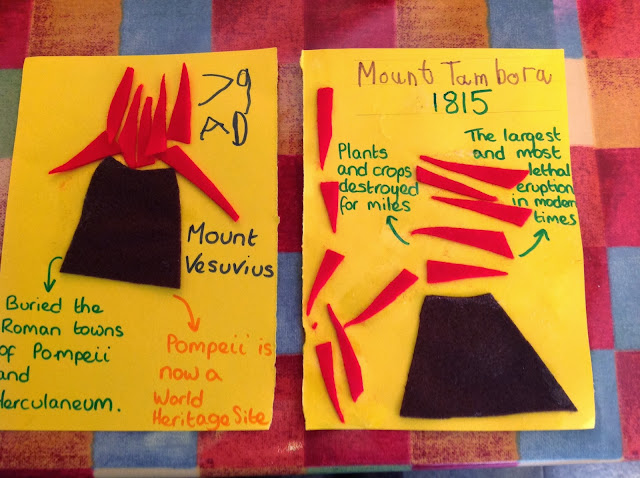 79
AD
Mount
Vesuvius
Buried the
Roman towns
of Pompeii
and
Herculaneum.
Pompeii is
now a
World
Heritage Site
Mount Tambora
1815
Plants
and crops
destroyed
for miles
The largest
and most
lethal
eruption
in modern
times